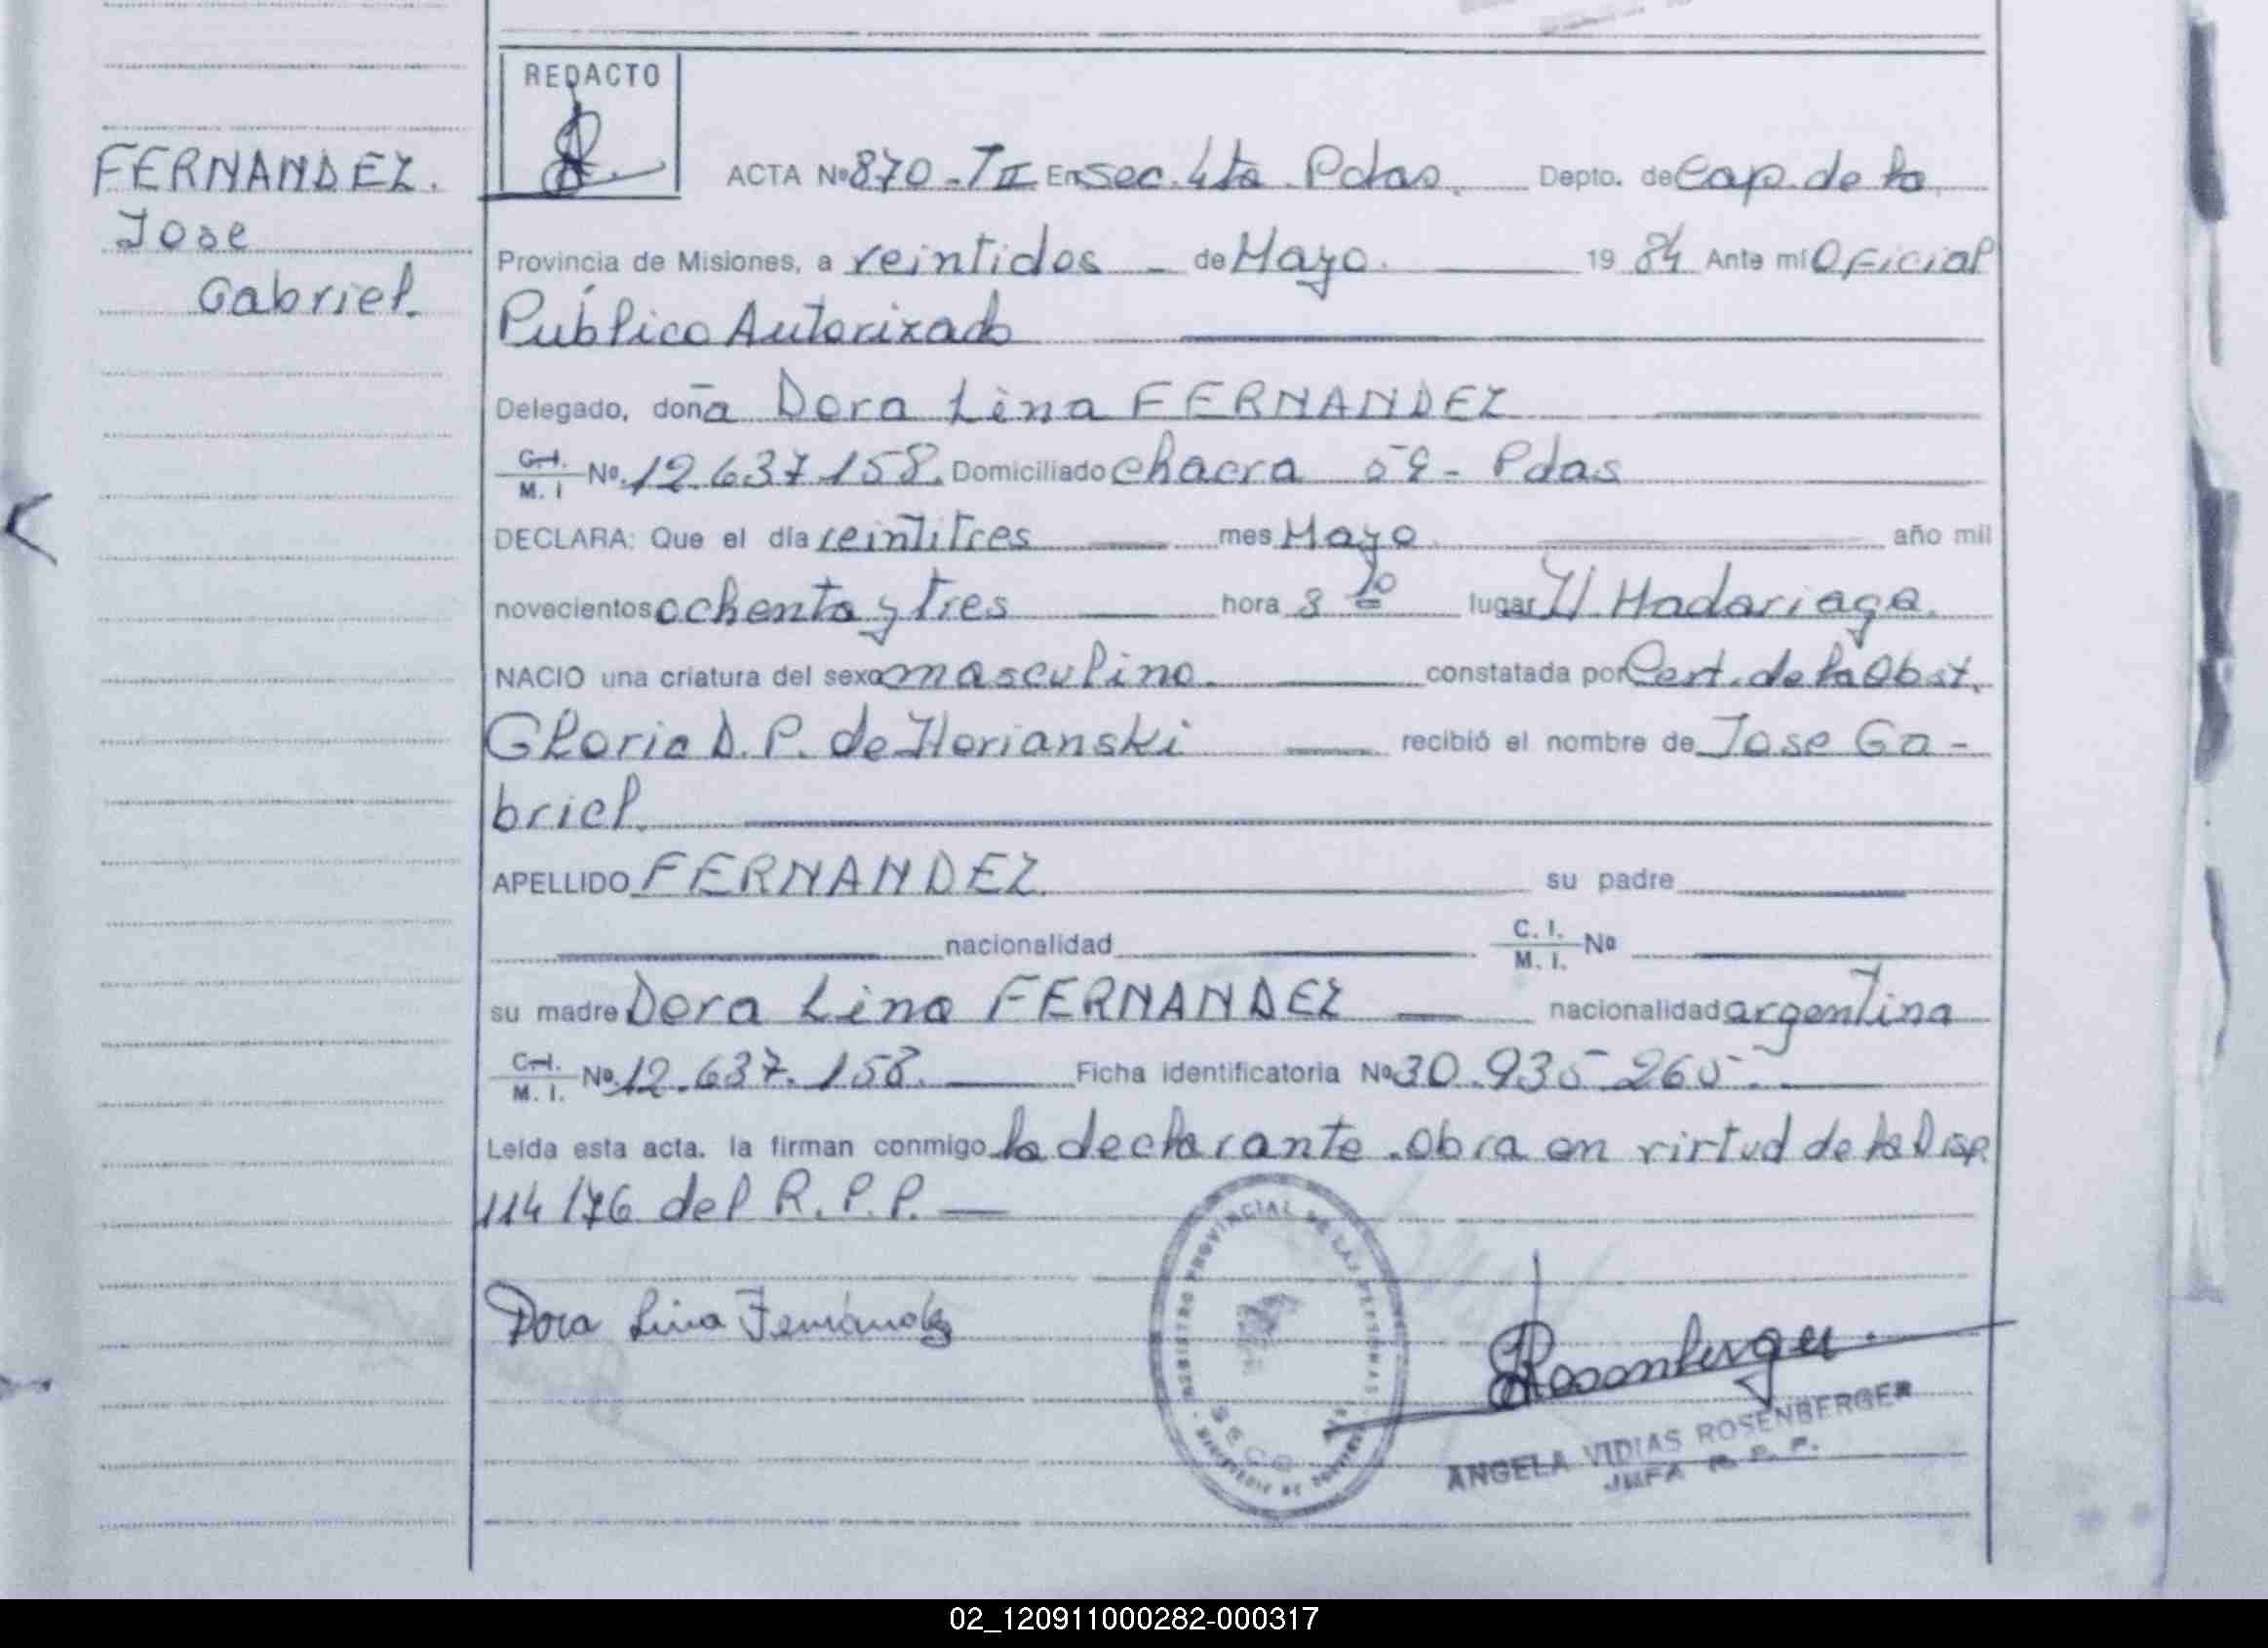 REDACTO
FERNANDEZ.
Jose
Gabriel.
ACTA Nº 870-TII En Sec. 4ta. Pdas. Depto. de Cap. de la
Provincia de Misiones, a veintidos - de Mayo. 19 84 Ante mí Oficial
Público Autorizado
Delegado, doña Dora Lina FERNANDEZ
C.I. M. I Nº 12.637.158. Domiciliado Chacra 59 - Pdas
DECLARA: Que el día veintitres mes Mayo año mil
novecientos ochenta y tres hora lugar H. Madariaga.
NACIO una criatura del sexo masculino. constatada por Cert. de la Obst.
Gloria D. P. de Horianski recibió el nombre de Jose Ga-
briel.
APELLIDO FERNANDEZ su padre
nacionalidad C. I. M. I. Nº
su madre Dora Lina FERNANDEZ nacionalidad argentina
C.I. M. I. Nº 12.637.158. Ficha identificatoria Nº 30.935 265.
Leída esta acta. la firman conmigo la declarante. Obra en virtud de la Disp.
114/76 del R. P. P.
REGISTRO PROVINCIAL DE LAS PERSONAS
Dora Lina Fernández
Rosenberger.
ANGELA VIDIAS ROSENBERGER
JEFA R. P. P.
02_120911000282-000317